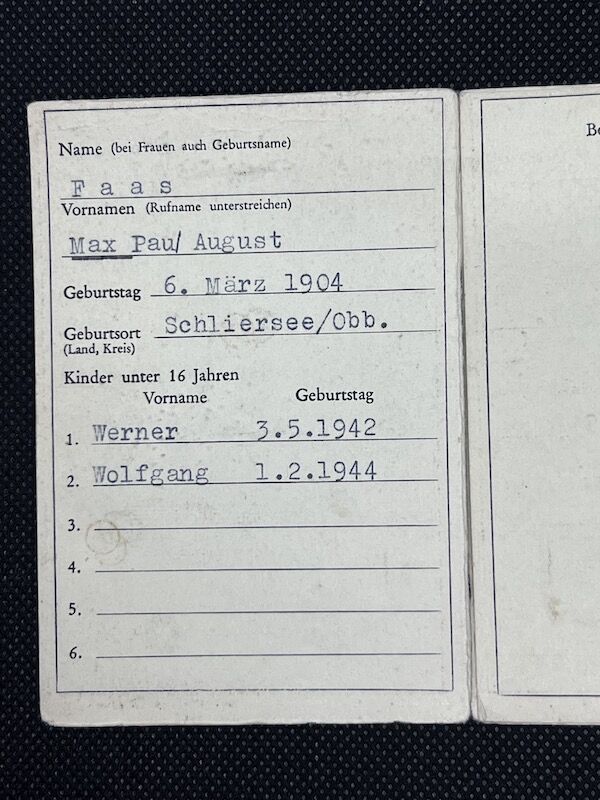 Name (bei Frauen auch Geburtsname)
Faas
Vornamen (Rufname unterstreichen)
Max Paul August
Geburtstag 6. März 1904
Geburtsort Schliersee/Obb.
(Land, Kreis)
Kinder unter 16 Jahren
Vorname Geburtstag
1. Werner 3.5.1942
2. Wolfgang 1.2.1944
3.
4.
5.
6.